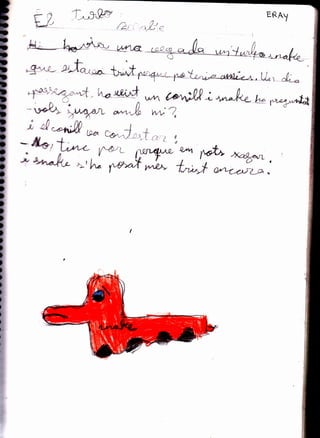 El Turbo
ERAY
Hi havia una vegada un turbo snake
que estava trist perque no tenia amics. Un dia
passejant, ha vist un conill i snake ha preguntat
-vols jugar amb mi?,
i el conill va contestar:
-No, tinc por perque em pots xafar.
i snake s'ha posat més trist encara.
snake